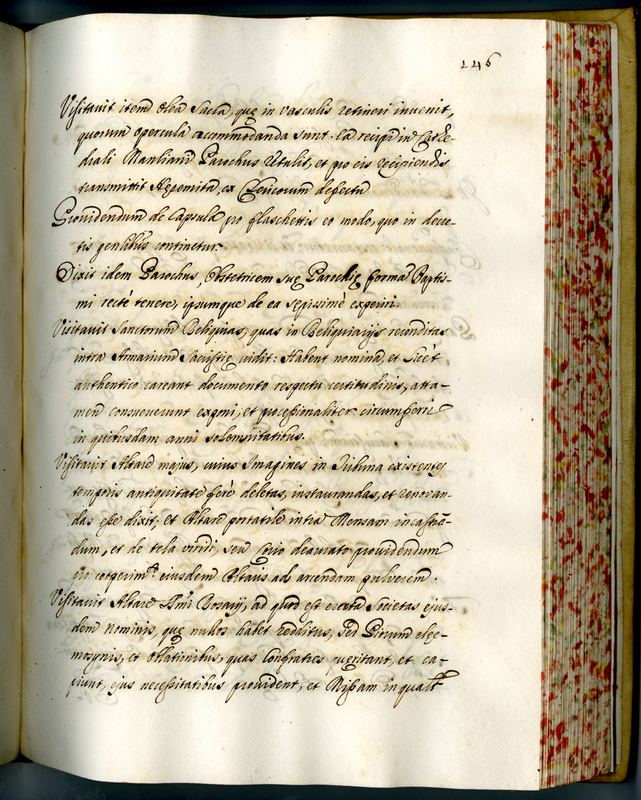 146
Visitavit item Olea Sacra, quę in vasculis retineri invenit,
quorum opercula accommodanda sunt. Ea recipi in Cathe-
drali Manliana Parochus retulit, et pro eis recipiendis
transmittit Heremita, ex Clericorum defectu
Providendum de Capsula pro flaschettis eo modo, quo in decre-
tis genlibus continetur.
Dixit idem Parochus, Obstetricem suę Parochię formam Baptis-
mi rectè tenere, ipsumque de ea sępissimè exquiri.
Visitavit Sanctorum Reliquias, quas in Reliquiarijs reconditas
intra Armarium Sacristię vidit: Habent nomina, et licèt
authentico careant documento respectu certitudinis, atta-
men consueverunt exponi, et processionaliter circumferri
in quibusdam anni solemnitatibus.
Visitavit Altare majus, cuius Imagines in Tribuna existentes
temporis antiquitate ferè deletas, instaurandas, et renovan-
das esse dixit, et Altare portatile intra Mensam incastran-
dum, et de tela viridi, seu Corio deaurato providendum
in eiusdem Altaris ad arcendum pulverem.
Visitavit Altare SSmi Rosarij, ad quod est erecta Societas ejus-
dem nominis, quę nullos habet redditus, sed Piorum elee-
mosynis, et Oblationibus, quas Confratres quęritant, et ca-
piunt, ejus necessitatibus provident, et Missam in qualt